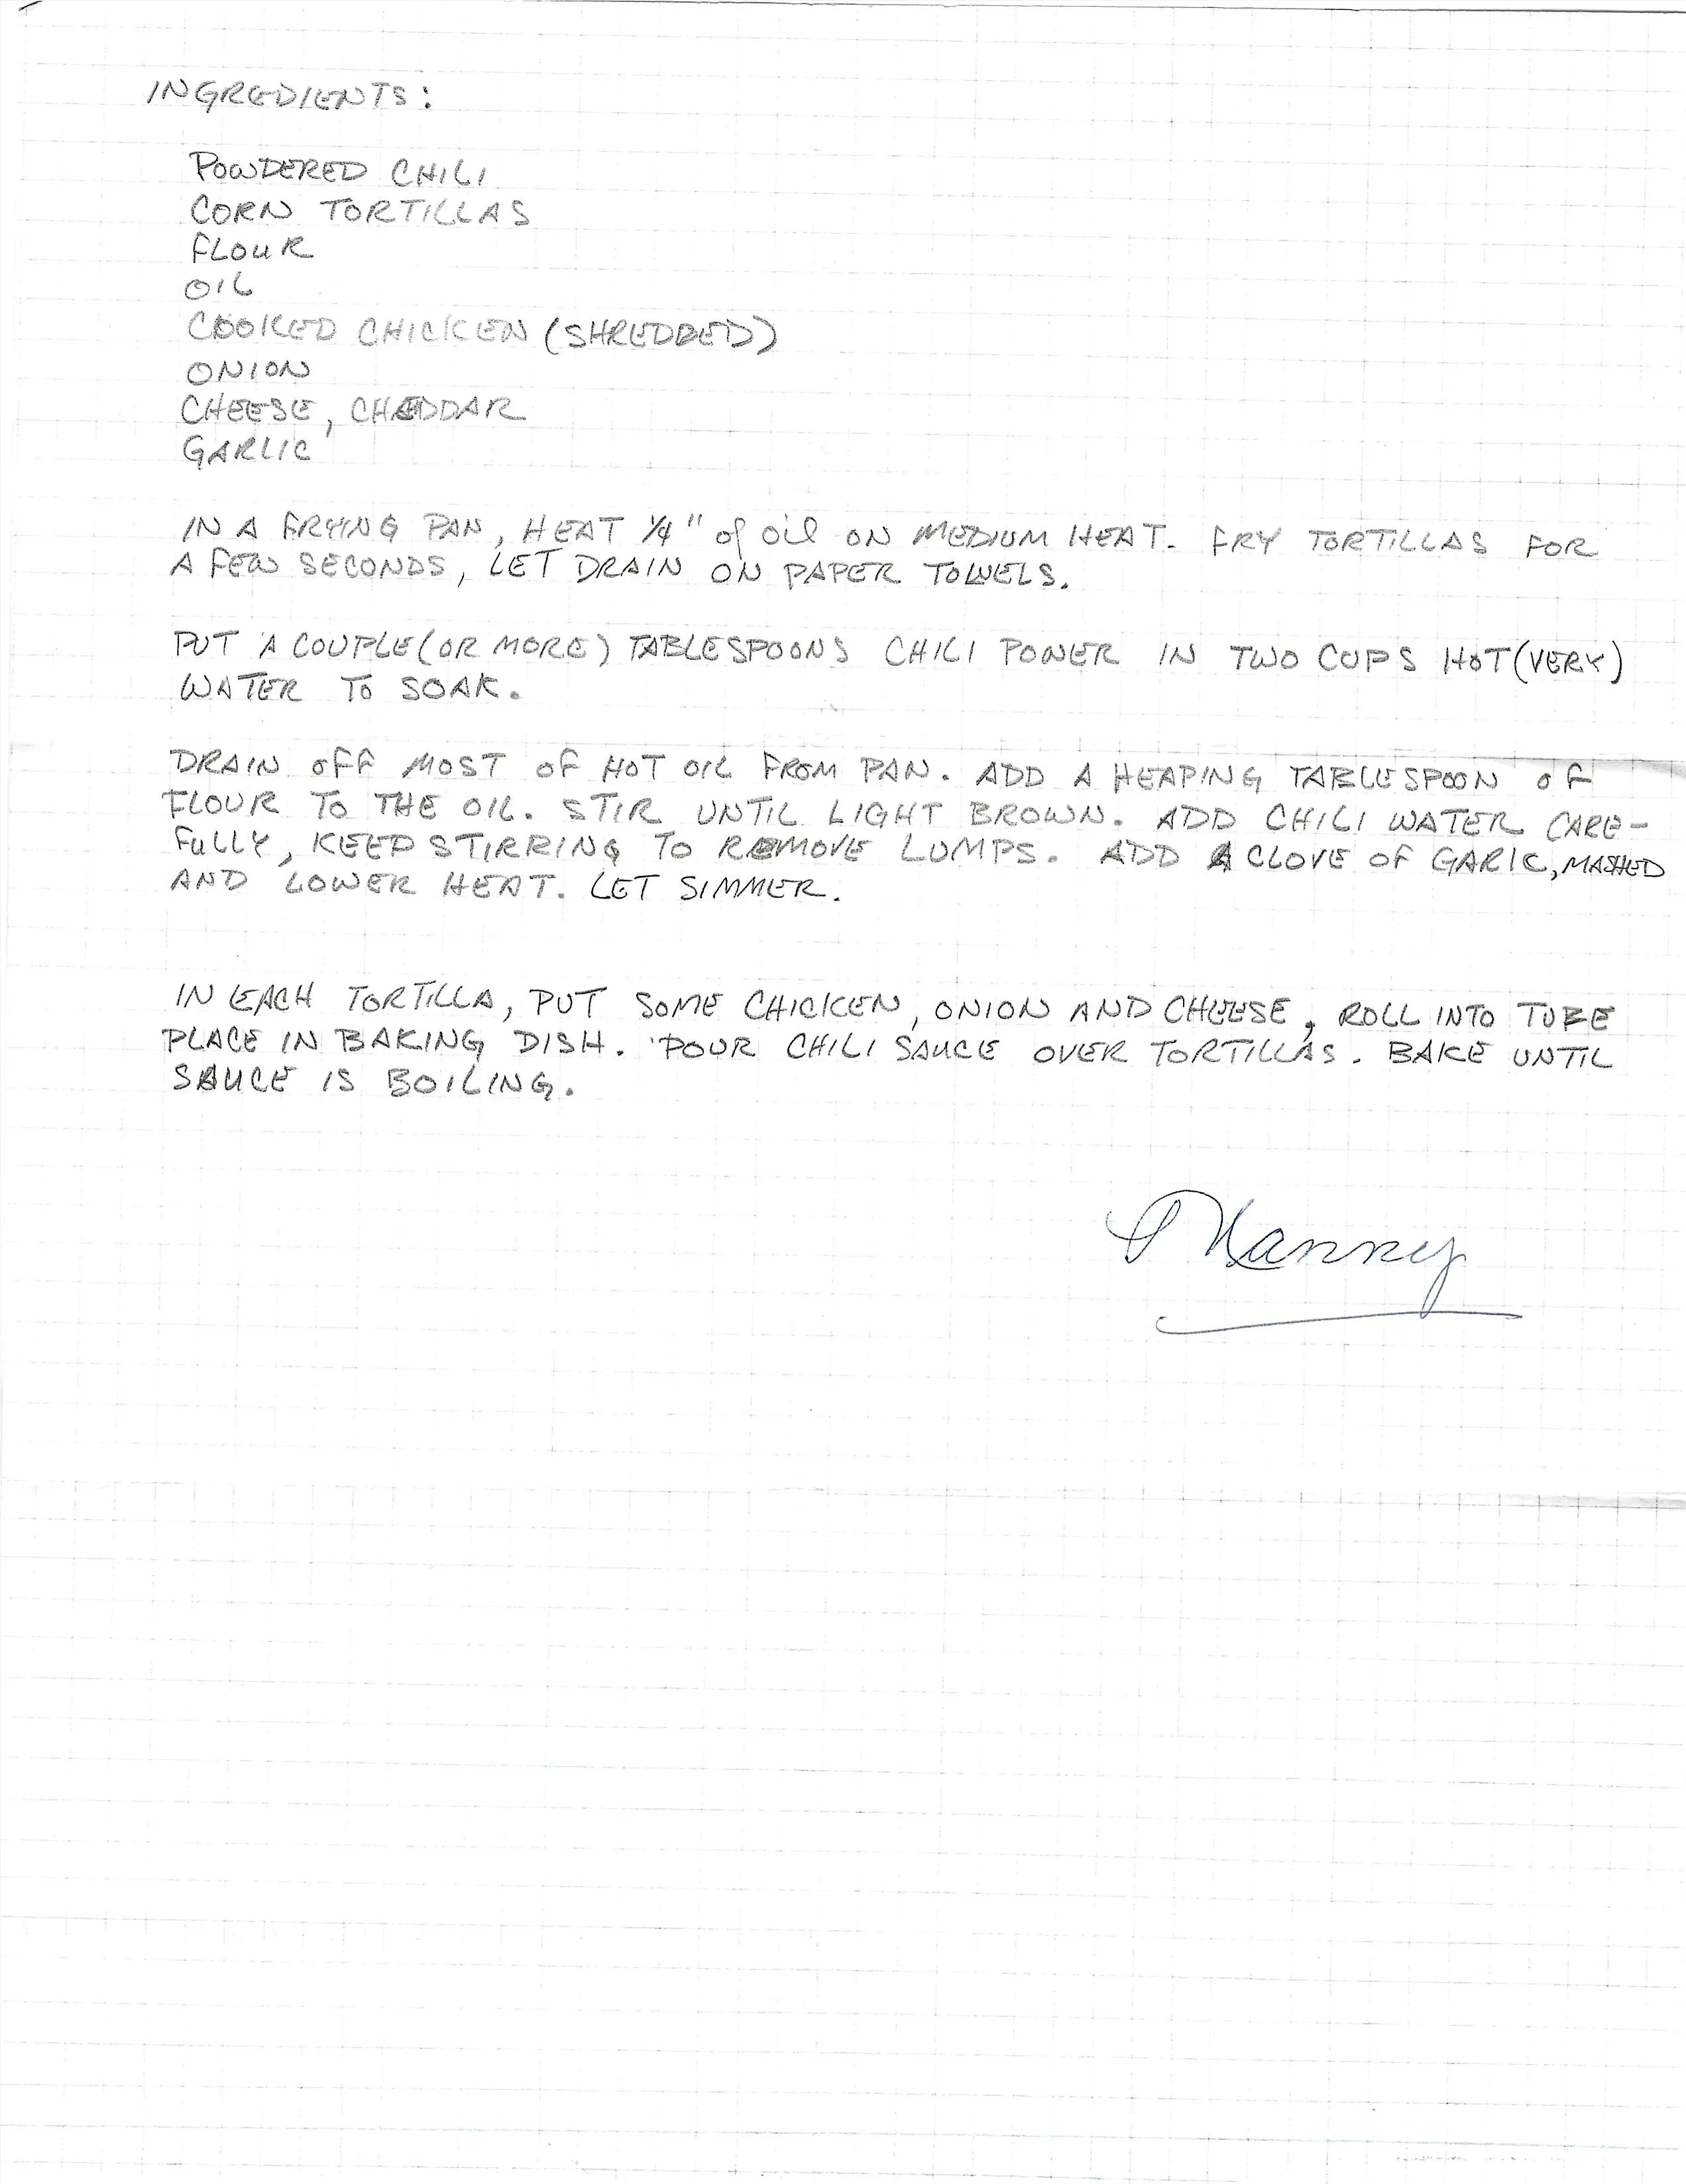 INGREDIENTS:
POWDERED CHILI
CORN TORTILLAS
FLOUR
OIL
COOKED CHICKEN (SHREDDED)
ONION
CHEESE, CHEDDAR
GARLIC
IN A FRYING PAN, HEAT 1/4" of oil ON MEDIUM HEAT. FRY TORTILLAS FOR
A FEW SECONDS, LET DRAIN ON PAPER TOWELS.
PUT A COUPLE (OR MORE) TABLESPOONS CHILI POWER IN TWO CUPS HOT (VERY)
WATER TO SOAK.
DRAIN OFF MOST OF HOT OIL FROM PAN. ADD A HEAPING TABLESPOON OF
FLOUR TO THE OIL. STIR UNTIL LIGHT BROWN. ADD CHILI WATER CARE-
FULLY, KEEP STIRRING TO REMOVE LUMPS. ADD A CLOVE OF GARIC, MASHED
AND LOWER HEAT. LET SIMMER.
IN EACH TORTILLA, PUT SOME CHICKEN, ONION AND CHEESE, ROLL INTO TUBE
PLACE IN BAKING DISH. POUR CHILI SAUCE OVER TORTILLAS. BAKE UNTIL
SAUCE IS BOILING.
Nanny